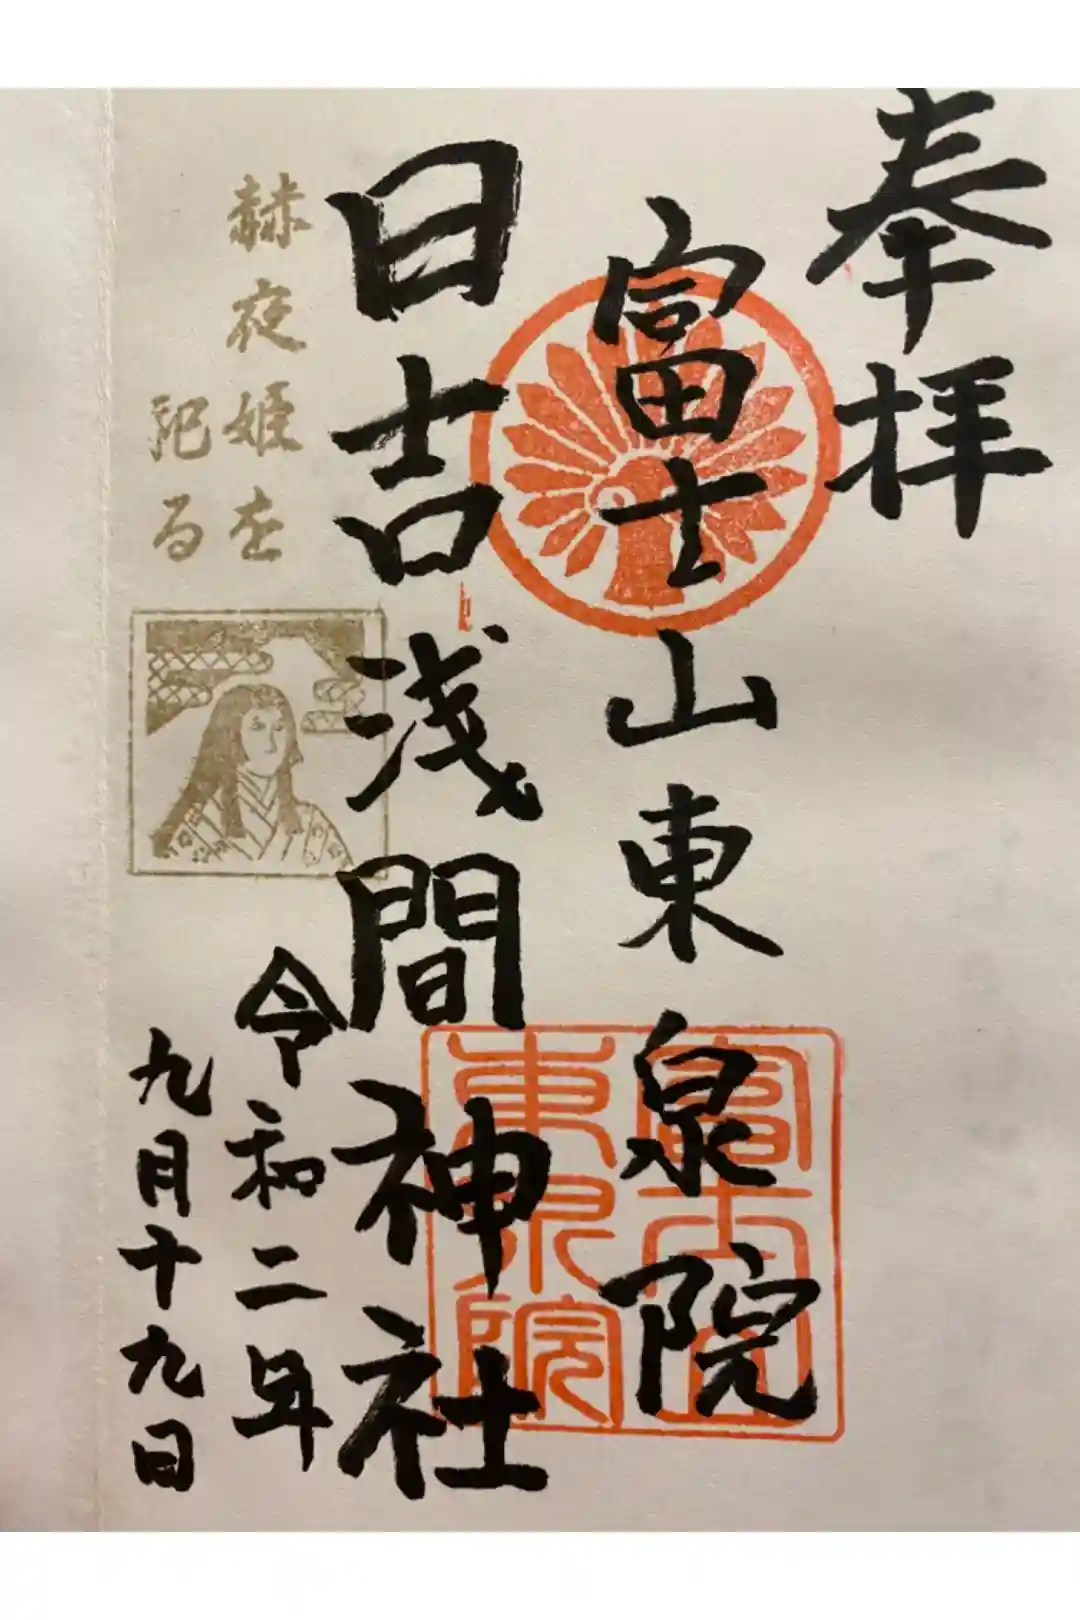 奉拝
富士山東泉院
日吉浅間神社
赫夜姫を
祀る
令和二年
九月十九日
富士山
東泉院